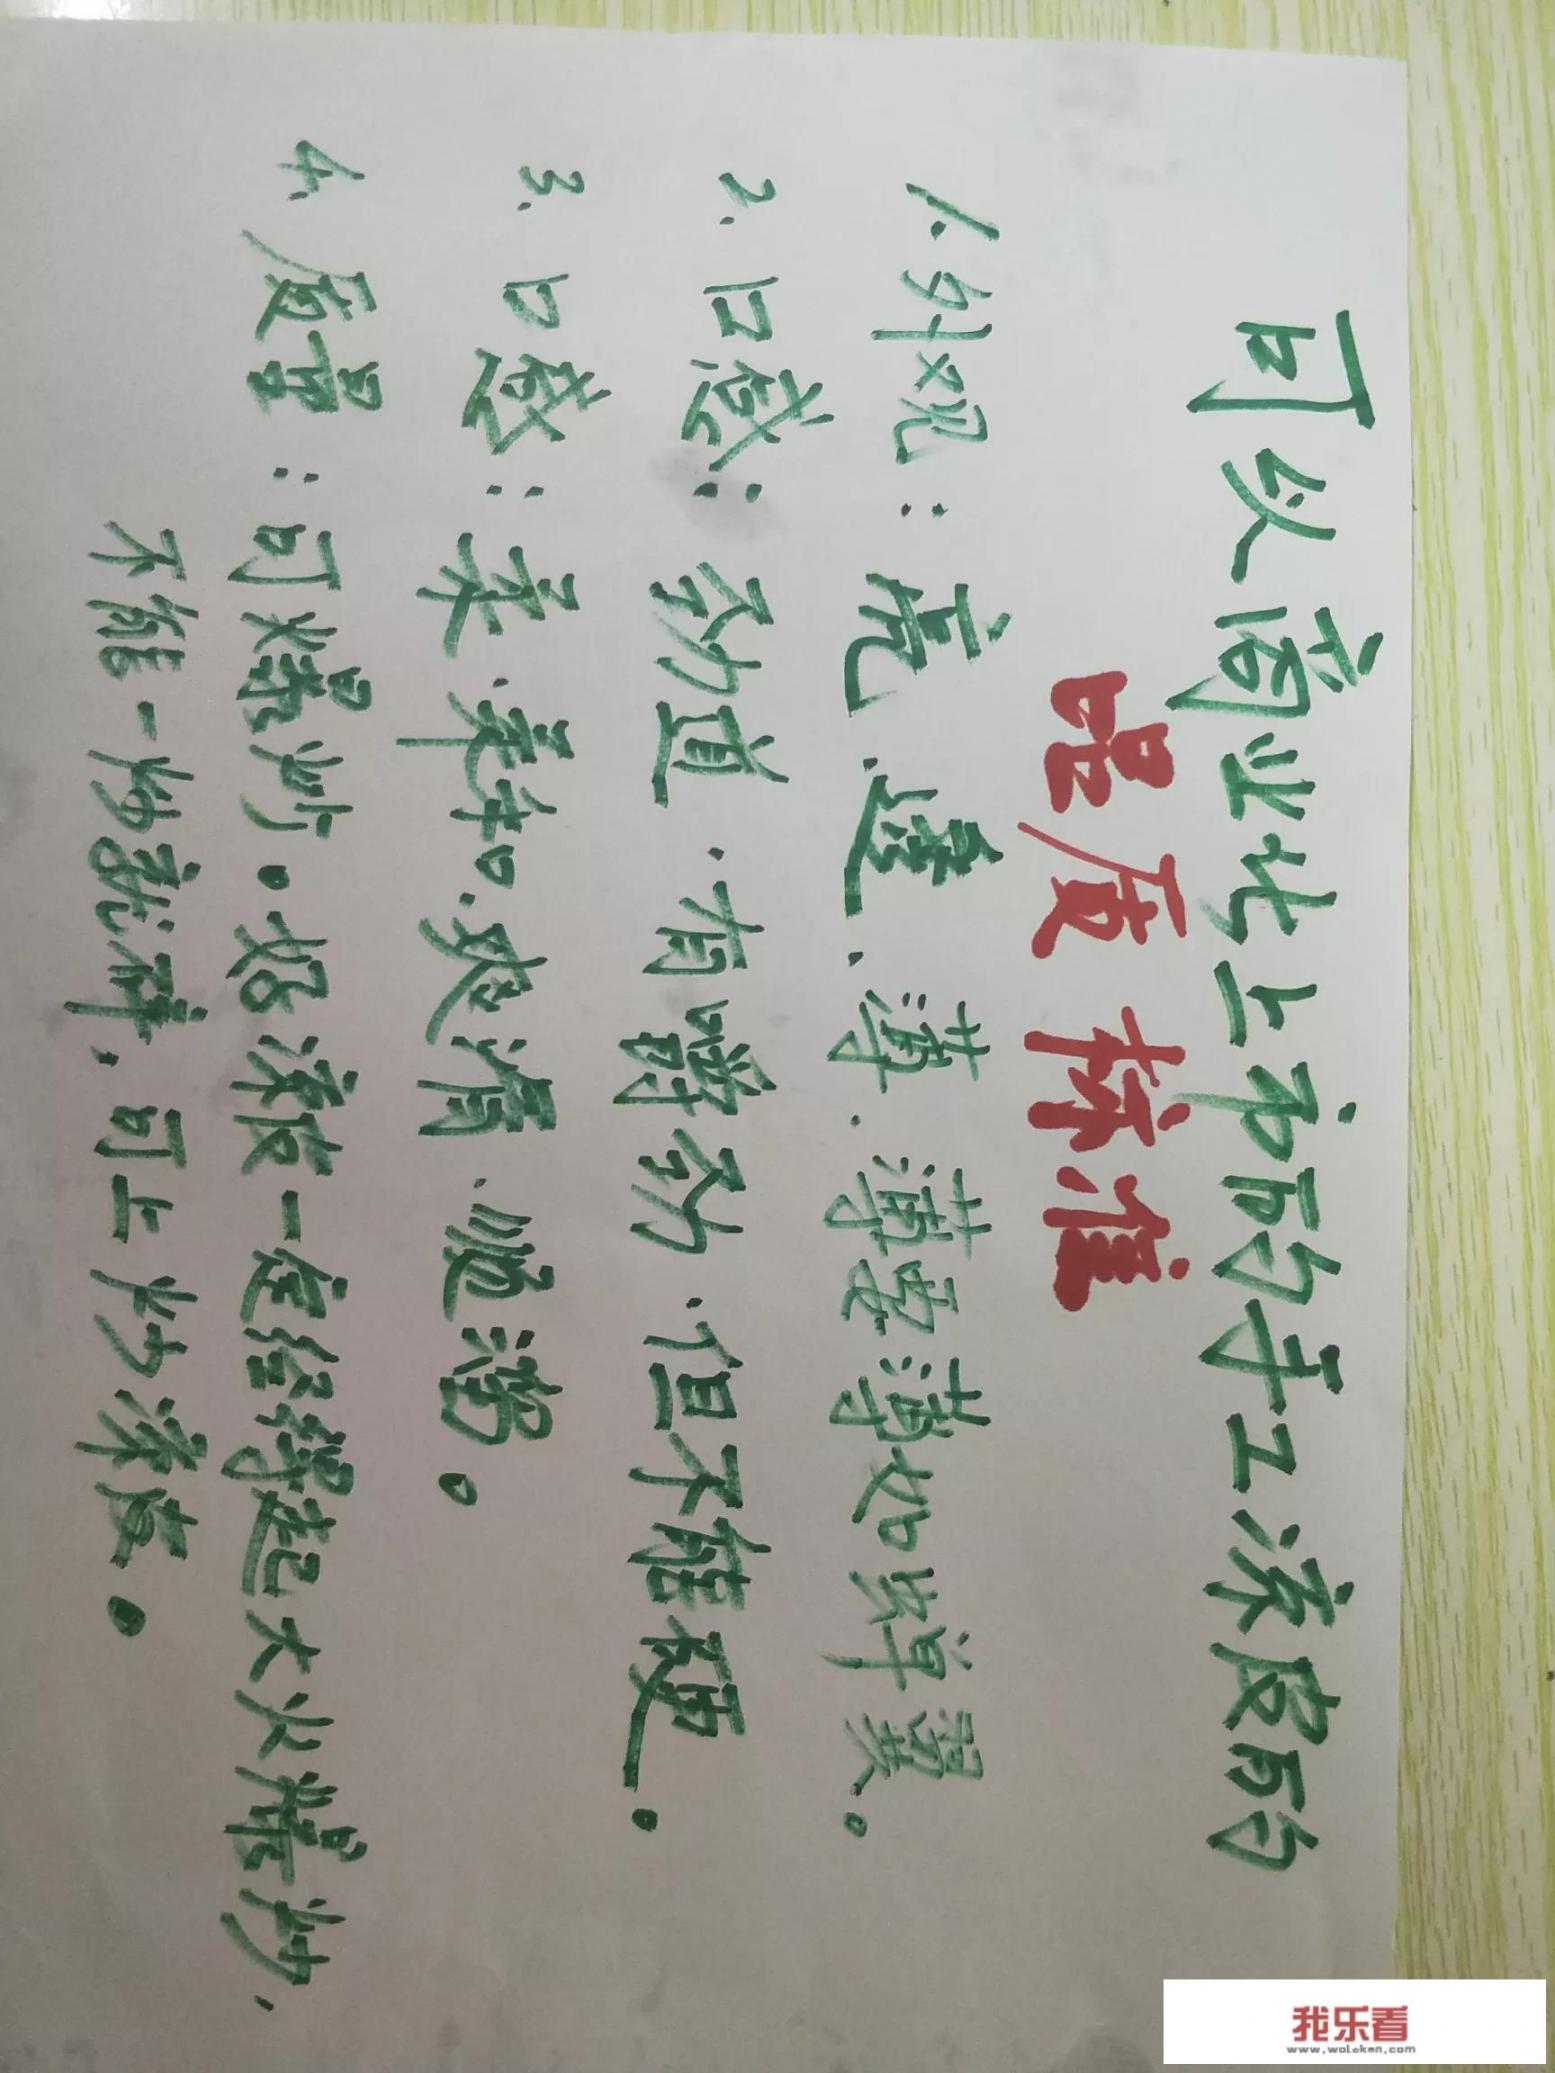 可以商业化上市的手工凉皮的
品质标准
1.外观：亮.透.薄.薄要薄如蝉翼。
2.口感：劲道.有嚼劲.但不能硬。
3.口感：柔.柔和.爽滑.顺溜。
4.质量：可爆炒。好凉皮一定经得起大火爆炒.
不能一炒就碎,可上炒凉皮。
我乐看
www.woleken.com